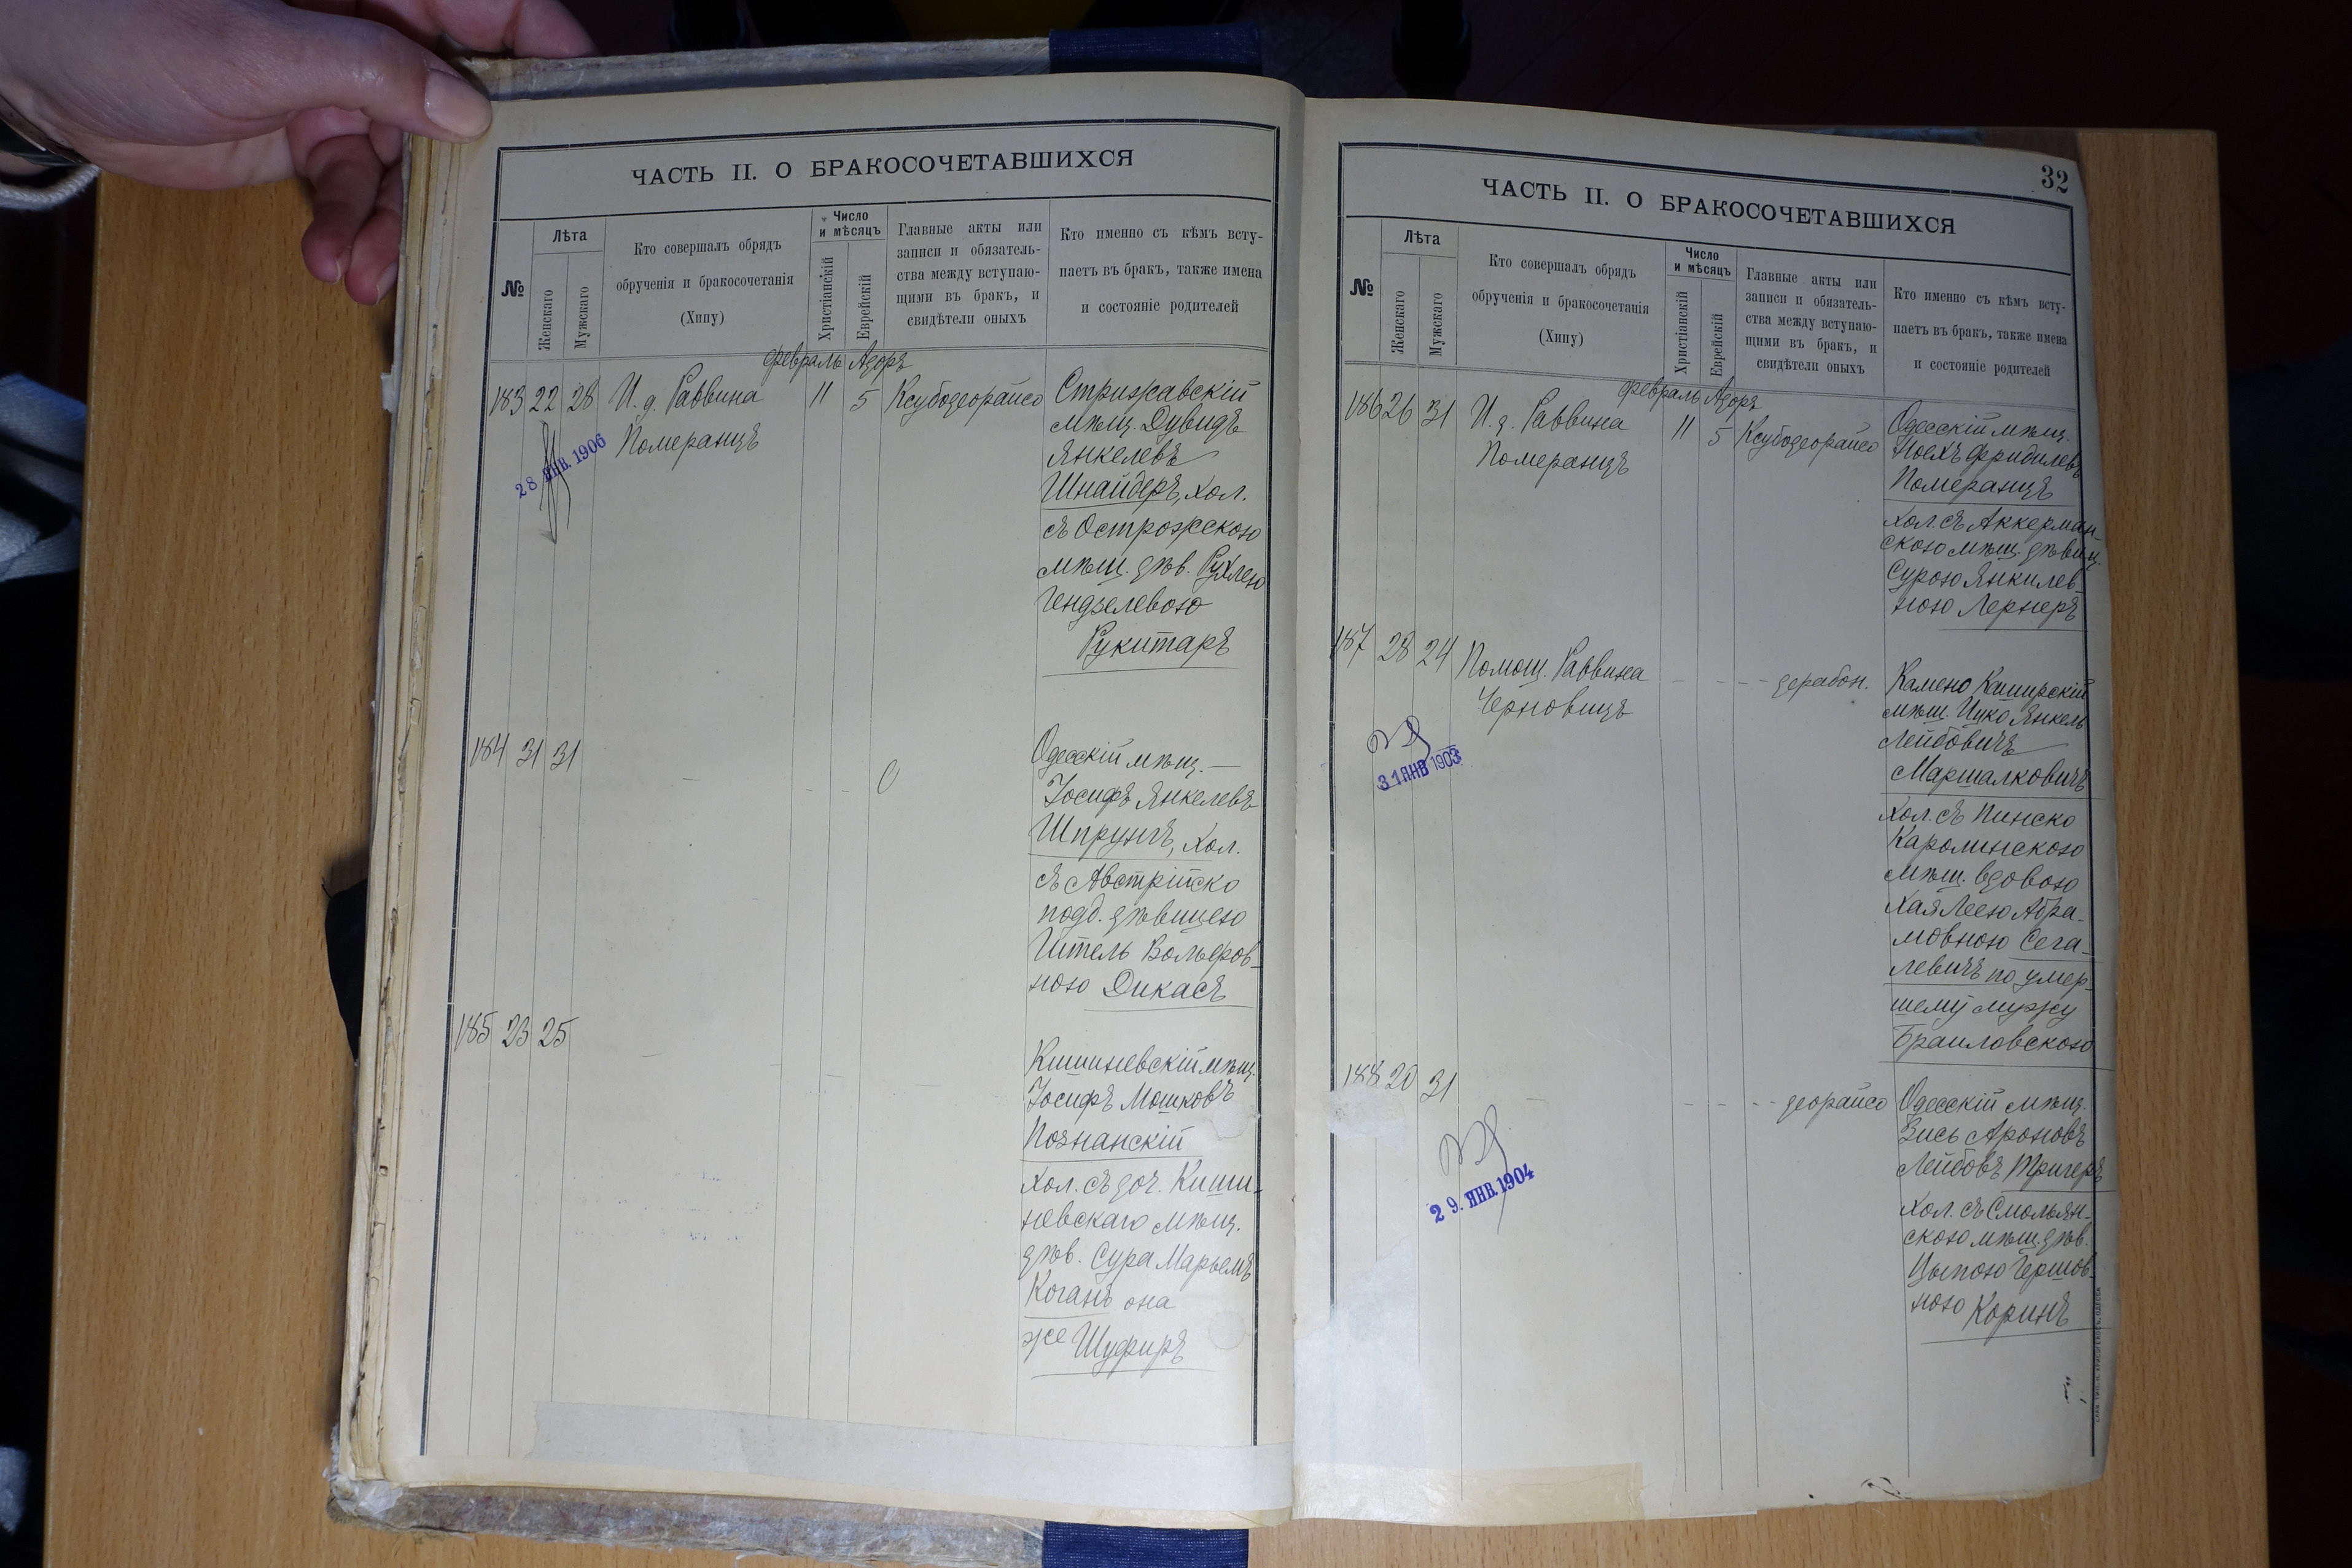 ЧАСТЬ II. О БРАКОСОЧЕТАВШИХСЯ
№
Лѣта
Женскаго
Мужскаго
Кто совершалъ обрядъ
обрученія и бракосочетанія
(Хипу)
Число
и мѣсяцъ
Христіанскій
Еврейскій
Главные акты или
записи и обязатель-
ства между вступаю-
щими въ бракъ, и
свидѣтели оныхъ
Кто именно съ кѣмъ всту-
паетъ въ бракъ, также имена
и состояніе родителей
Февраль Адоръ
183 22 28 И. д. Раввина 11 5 Ксубодеорайсо
Померанцъ
28 ЯНВ. 1906
Стрижавскій
мѣщ. Дувидъ
Янкелевъ
Шнайдеръ, хол.
съ Острожскою
мѣщ. дѣв. Рухлею
Гендзелевою
Рукитаръ
184 31 31
Одесскій мѣщ.
Іосифъ Янкелевъ
Шпрунгъ, хол.
съ Австрійско
подд. дѣвицею
Гитель Вольфов-
ною Дикасъ
185 23 25
Кишиневскій мѣщ.
Іосифъ Мошковъ
Познанскій
хол. съ доч. Киши-
невскаго мѣщ.
дѣв. Сура Марьемъ
Коганъ она
же Шуфиръ
32
ЧАСТЬ II. О БРАКОСОЧЕТАВШИХСЯ
№
Лѣта
Женскаго
Мужскаго
Кто совершалъ обрядъ
обрученія и бракосочетанія
(Хипу)
Число
и мѣсяцъ
Христіанскій
Еврейскій
Главные акты или
записи и обязатель-
ства между вступаю-
щими въ бракъ, и
свидѣтели оныхъ
Кто именно съ кѣмъ всту-
паетъ въ бракъ, также имена
и состояніе родителей
Февраль Адоръ
186 26 31 И. д. Раввина 11 5 Ксубодеорайсо
Померанцъ
Одесскій мѣщ.
Ноехъ Фридилевъ
Померанцъ
хол. съ Аккерман-
скою мѣщ. дѣвиц.
Сурою Янкилев-
ною Лернеръ
187 28 24 Помощ. Раввина дерабон.
Черновицъ
31 ЯНВ 1903
Камено Каширскій
мѣщ. Ицко Янкель
Лейбовичъ
Маршалковичъ
хол. съ Пинско
Каролинскою
мѣщ. вдовою
Хая Леею Абра-
мовною Сега-
левичъ по умер-
шему мужу
Браиловскою
188 20 31 деорайсо
29. ЯНВ. 1904
Одесскій мѣщ.
Зись Ароновъ
Лейбовъ Тригеръ
хол. съ Смольян-
скою мѣщ. дѣв.
Цыпою Гершов-
ною Коринъ